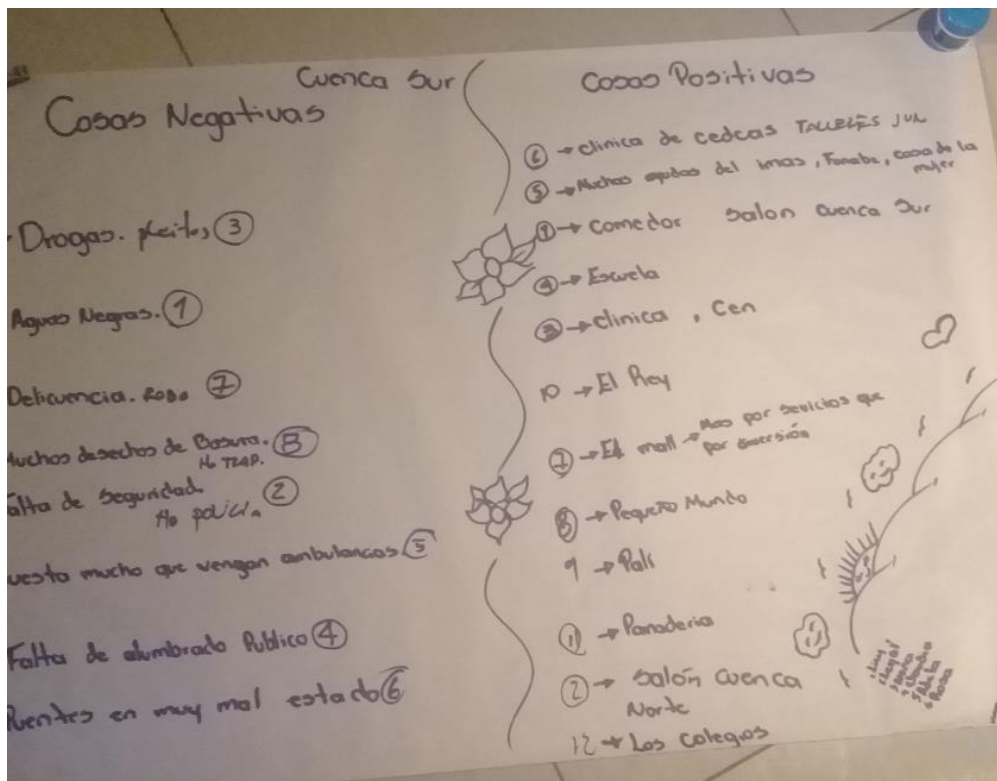 Cuenca Sur
Cosas Negativas
Drogas. pleitos ③
Aguas Negras. ①
Delicuencia. Robo ⑦
uchos desechos de Basura. ⑧
No TRAP.
alta de Seguridad. ②
No policia
uesta mucho que vengan ambulancias ⑤
Falta de alumbrado Publico ④
Puentes en muy mal estado ⑥
Cosas Positivas
⑥ → clinica de cedcas TALLERES
⑤ → Muchas ayudas del imas, Fonabe, casa de la
mujer
① → comedor salon cuenca Sur
④ → Escuela
③ → clinica, Cen
10 → El Rey
⑦ → El mall → Mas por servicios que
por diversión
⑧ → Pequeño Mundo
9 → Pali
⑪ → Panaderia
② → salón cuenca
Norte
12 → Los colegios
Rosa